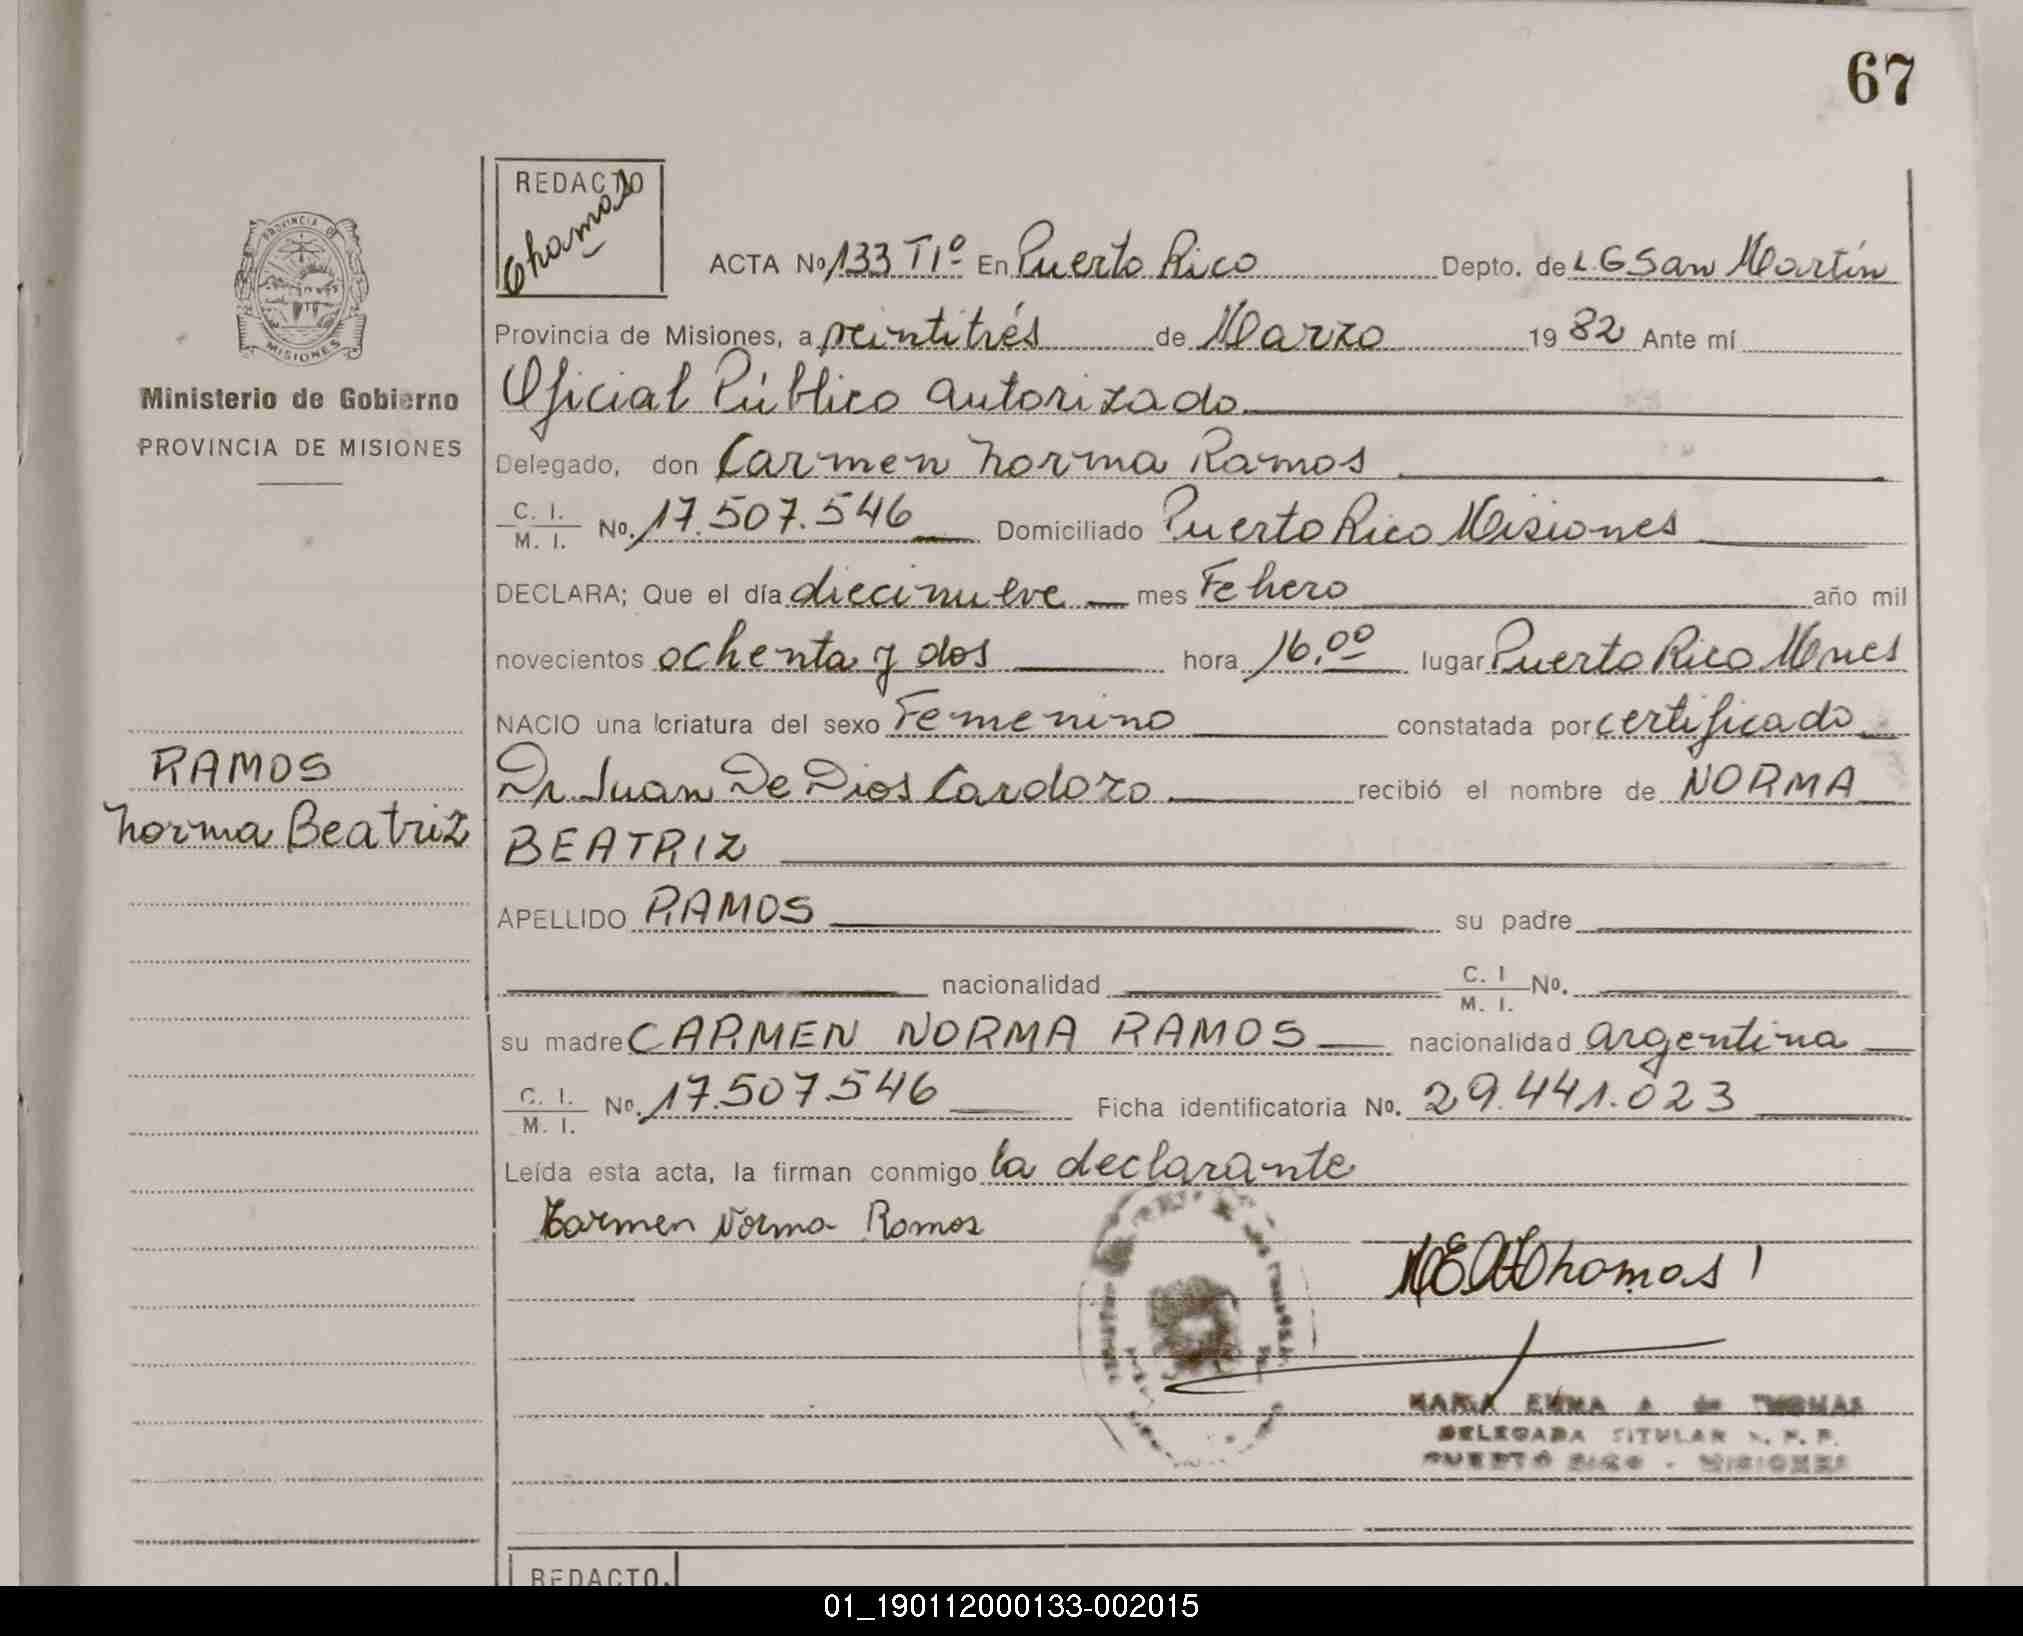 67
REDACTO
Thomas
ACTA Nº 133 TIº En Puerto Rico Depto. de L.G San Martín
Provincia de Misiones, a veintitrés de Marzo 1982 Ante mí
Oficial Público autorizado
Delegado, don Carmen Norma Ramos
C. I.
M. I. No. 17.507.546 Domiciliado Puerto Rico Misiones
DECLARA; Que el día diecinueve mes Febrero año mil
novecientos ochenta y dos hora 16,00 lugar Puerto Rico Mnes
NACIO una criatura del sexo Femenino constatada por certificado
Dr. Juan De Dios Cardozo recibió el nombre de NORMA
BEATRIZ
APELLIDO RAMOS su padre
nacionalidad C. I
M. I. Nº.
su madre CARMEN NORMA RAMOS nacionalidad argentina
C. I.
M. I. Nº. 17.507.546 Ficha identificatoria Nº. 29.441.023
Leída esta acta, la firman conmigo la declarante
Carmen Norma Ramos
MEA Thomas
MARIA EMMA A. de THOMAS
DELEGADA TITULAR R. P. P.
PUERTO RICO - MISIONES
PROVINCIA DE
MISIONES
Ministerio de Gobierno
PROVINCIA DE MISIONES
RAMOS
Norma Beatriz
REDACTO.
01_190112000133-002015